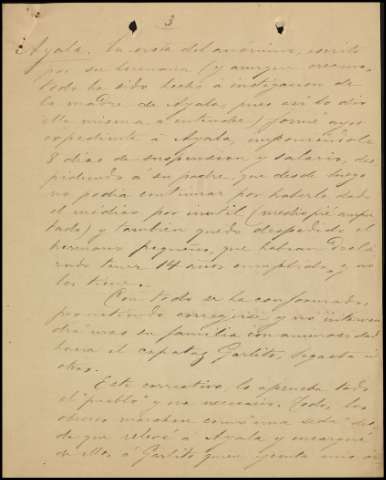 3
Ayala. En vista del anónimo, escrito
por su hermana (y aunque creemos
todo ha sido hecho a instigacion de
la madre de Ayala pues asi lo dió
ella misma a entender) formé oyo
expediente á Ayala, imponiéndole
8 dias de suspension y salario, des
pidiendo á su padre que desde luego
no podia continuar por haberlo dado
el médico por inutil (medio pié ampu
tado) y tambien queda despedido el
hermano pequeño, que habian decla
rado tener 14 años cumplidos y no
los tiene.
Con todo se ha conformado,
prometiendo corregirse y no interven
drá mas su familia con animosidad
hacia el capataz Garlito,
otros.
Este correctivo, lo aprueba todo
el "pueblo" y era necesario. Todos los
obreros marchan como una seda des
de que relevé a Ayala y encargué
de ellos á Garlito quien